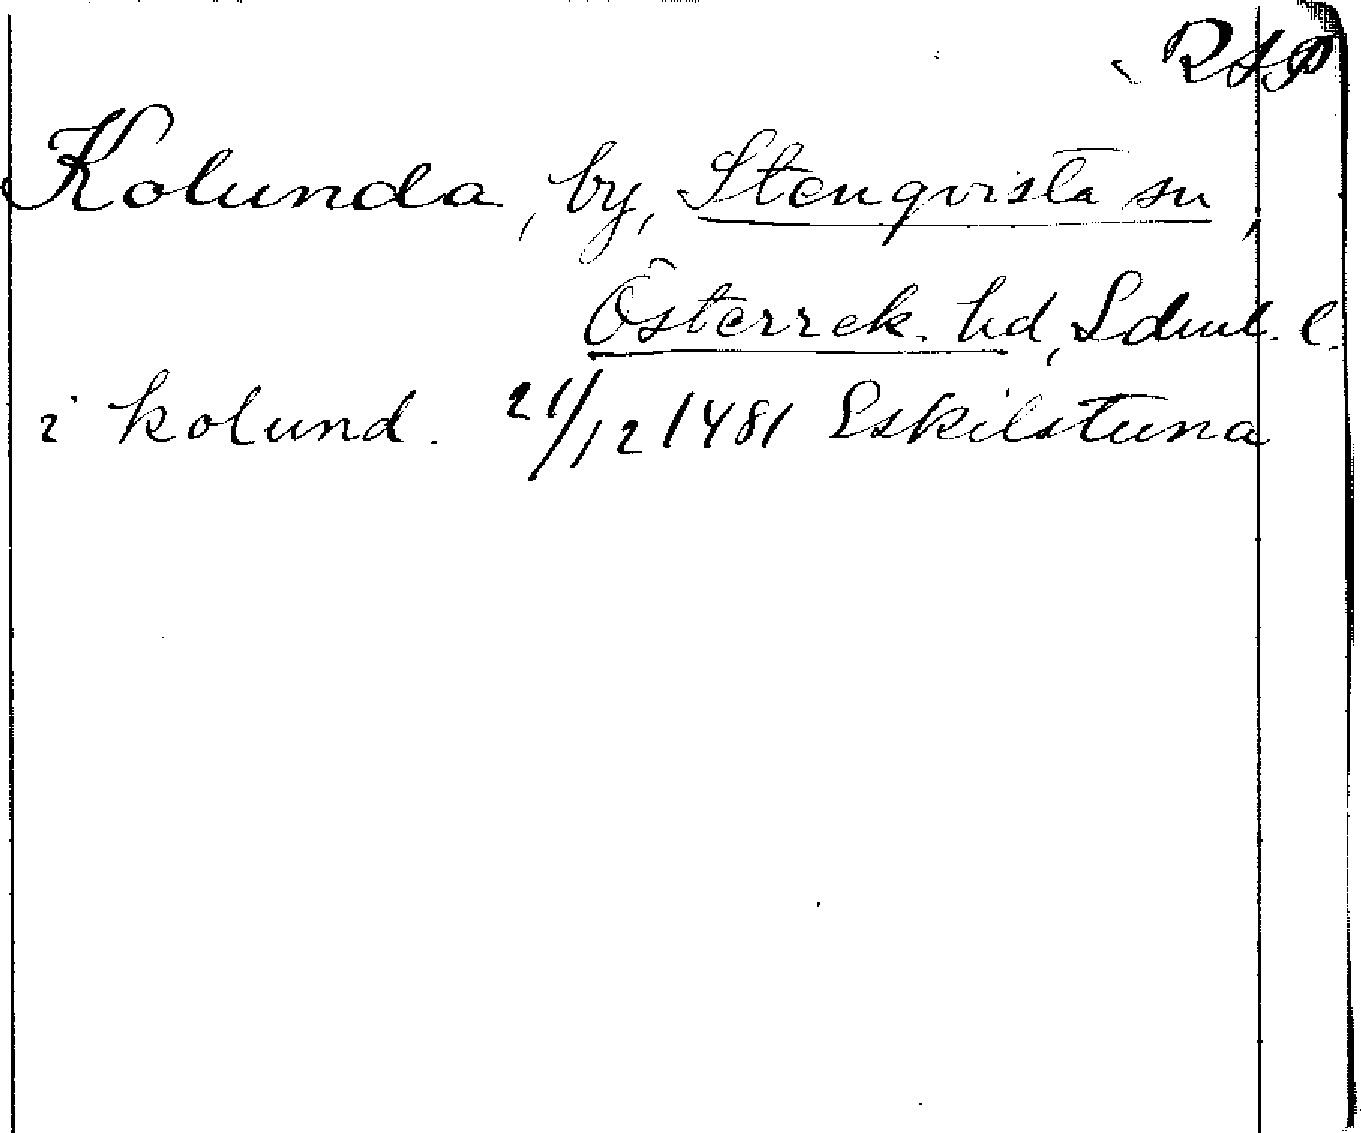 RAP
Kolunda, by, Stenqvista sn,
Österrek. hd, Sdml. l.
i kolund. 21/12 1481 Eskilstuna